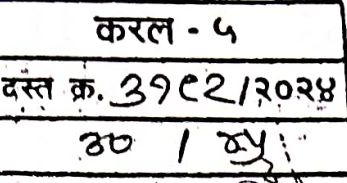 करल - ५
दस्त क्र. ३१९२/२०२४
३० / ४५